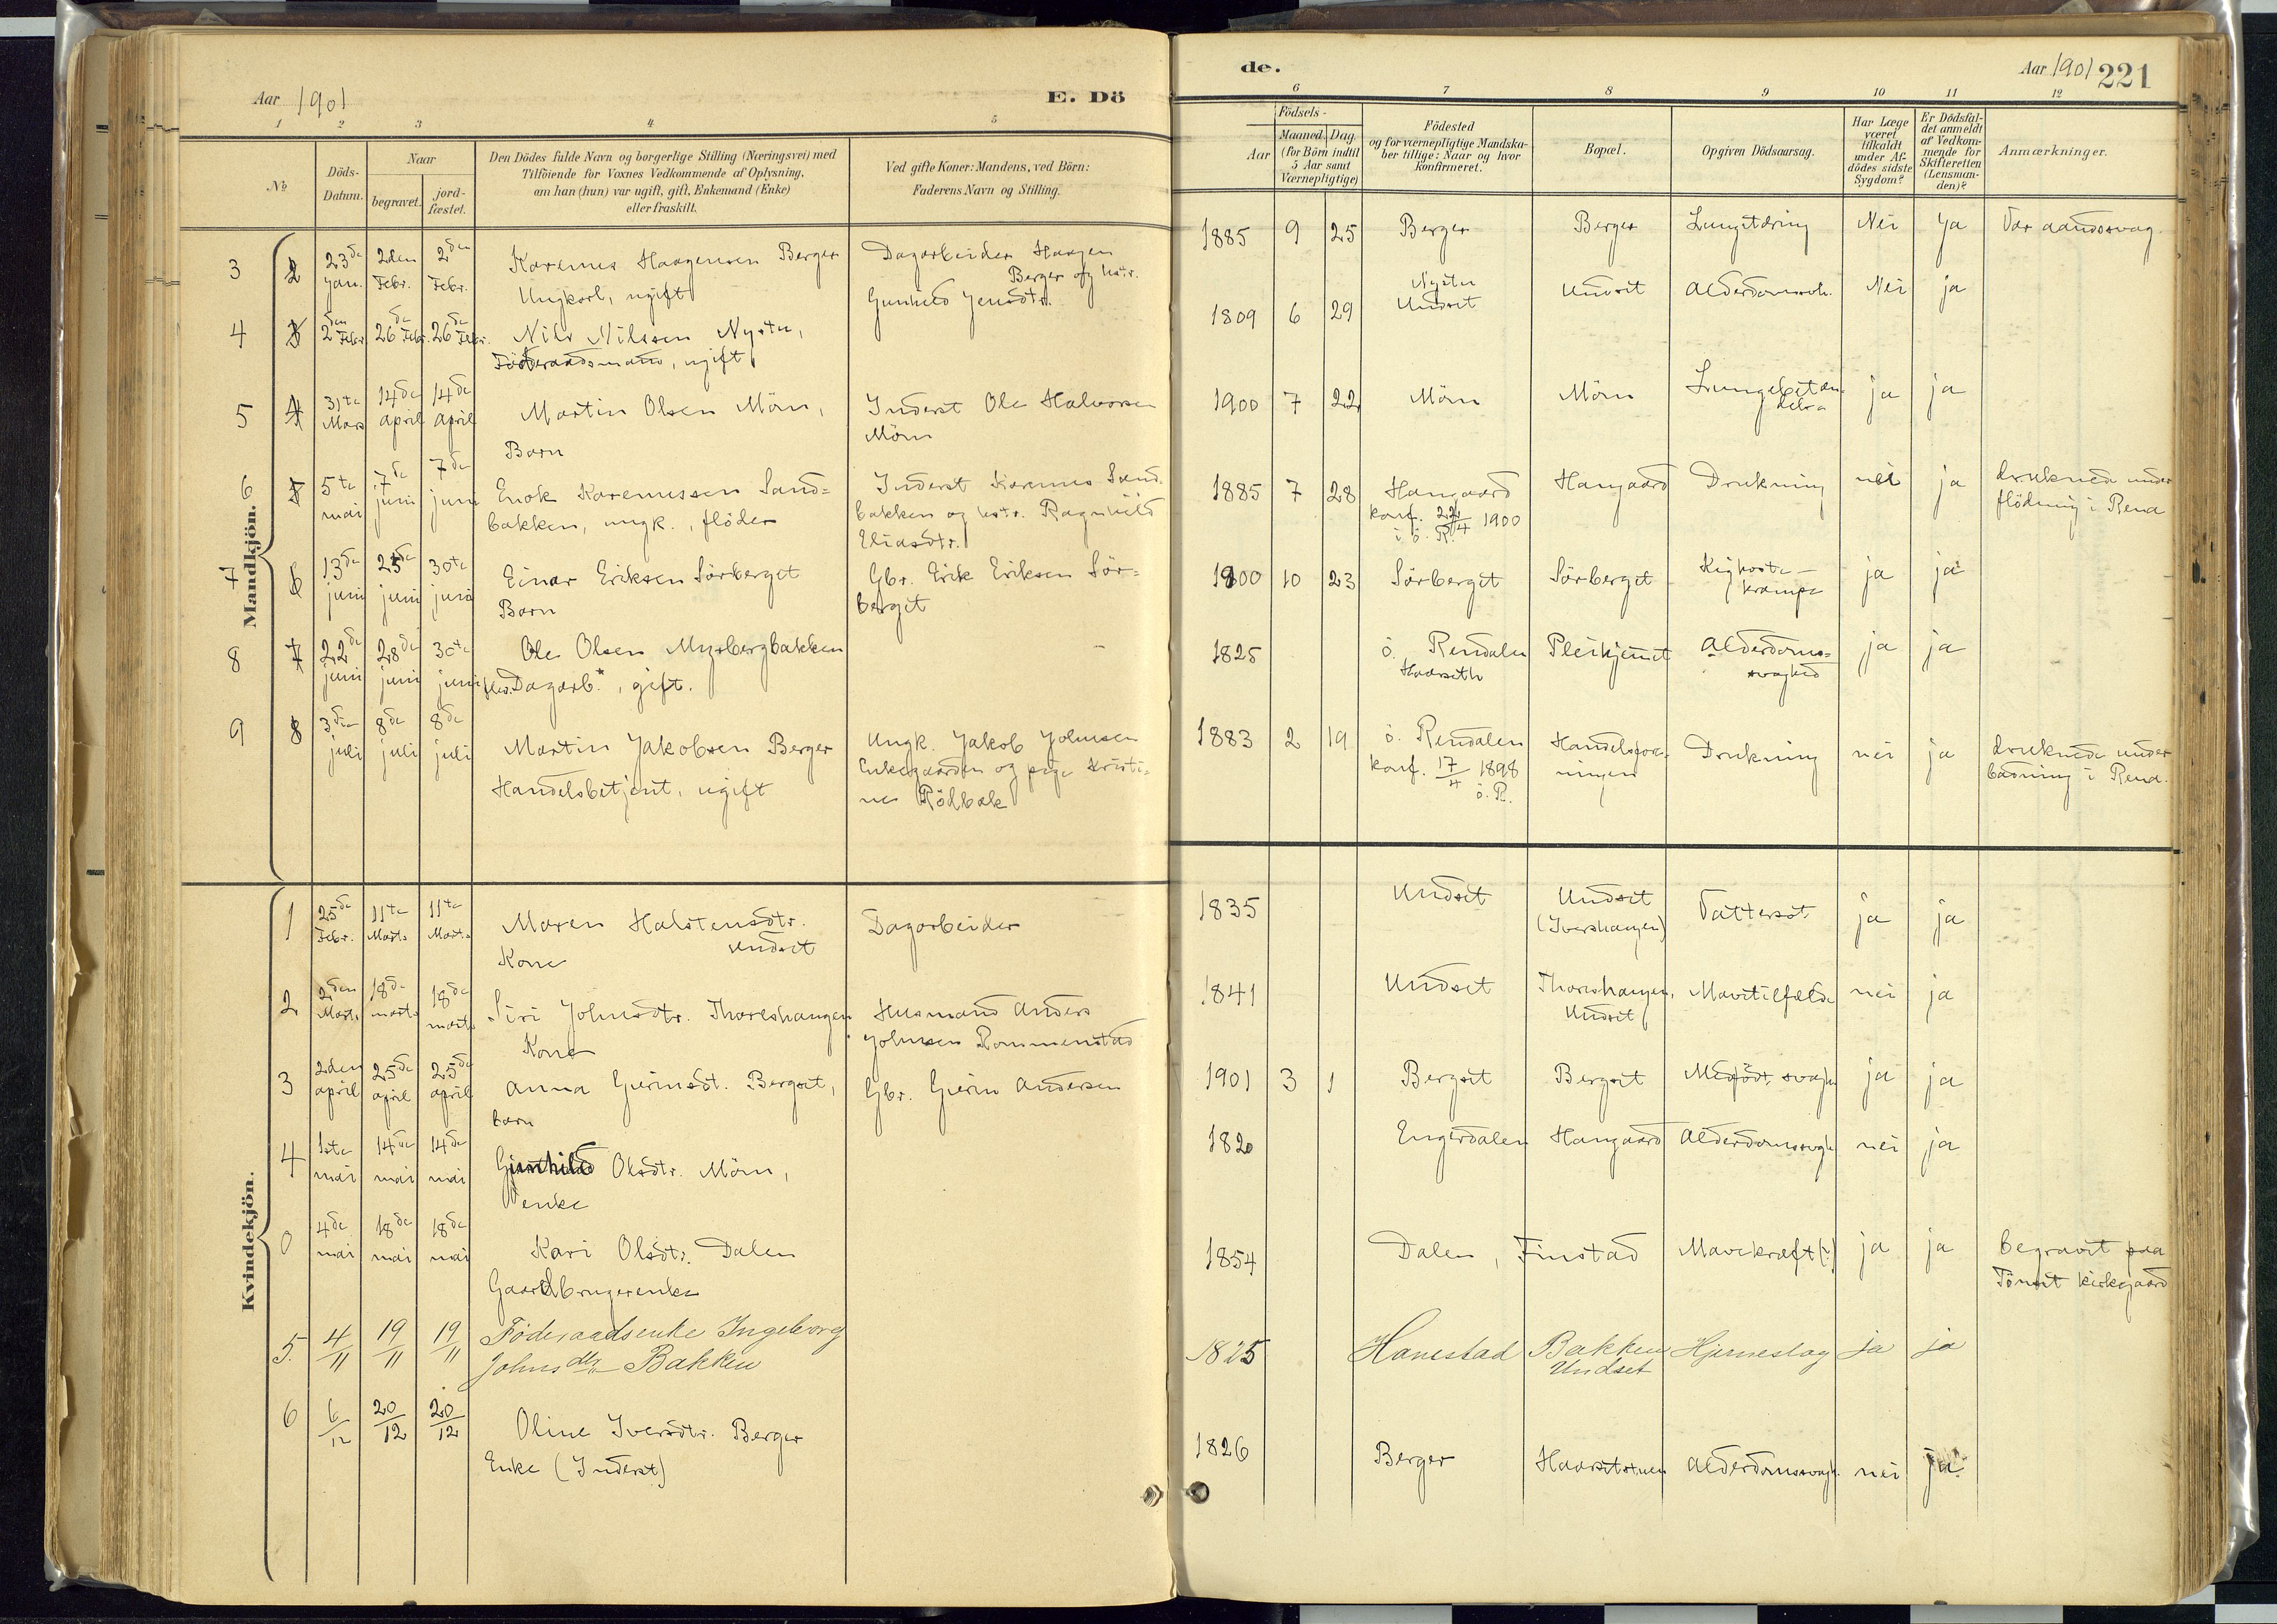 Aar 1901
E. Dö
1 2 3 4 5
№
Döds-
Datum.
Naar
begravet.
jord-
fæstet.
Den Dödes fulde Navn og borgerlige Stilling (Næringsvei) med
Tilföiende for Voxnes Vedkommende af Oplysning,
om han (hun) var ugift, gift, Enkemand (Enke)
eller fraskilt.
Ved gifte Koner: Mandens, ved Börn:
Faderens Navn og Stilling.
Mandkjön.
3 2 23de Jan. 2den Febr. 2den Febr.
Karenus Haagensen Berger
Ungkarl, ugift
Dagarbeider Haagen
Berger og hstr.
Gunhild Jensdtr.
4 3 2den Febr. 26de Febr. 26de Febr.
Nils Nilssen Nystu,
Föderaadsmand, ugift
5 4 31te Mars 14de april 14de april
Martin Olsen Mörn,
Barn
Inderst Ole Halvorsen
Mörn
6 5 5te mai 7de juni 7de juni
Enok Karenussen Sand=
bakken, ungk., flöder
Inderst Karenus Sand-
bakken og hstr. Ragnhild
Eliasdtr.
7 6 13de juni 25de juni 30te juni
Einar Eriksen Sörberget
Barn
Gbr. Erik Eriksen Sör=
berget
8 7 22de juni 28de juni 30te juni
Ole Olsen Myrbergbakken
Dagarb., gift.
9 8 3die juli 8de juli 8de juli
Martin Jakobsen Berger
Handelsbetjent, ugift
Ungk. Jakob Johnsen
Enkegaarden og pige Kristi=
ne Rödbæk
Kvindekjön.
1 25de Febr. 11te Marts 11te Marts
Maren Halstensdtr.
Undset
Kone
Dagarbeider
2 2den Marts 18de marts 18de marts
Siri Johnsdtr. Thoreshaugen
Kone
Husmand Anders
Johnsen Rommenstad
3 2den april 25de april 25de april
Anna Gurinsdt. Bergset,
barn
Gbr. Gurin Andersen
4 1ste mai 14de mai 14de mai
Gunhild Olsdtr. Mörn,
enke
0 4de mai 18de mai 18de mai
Kari Olsdtr. Dalen
Gaardbrugerenke
5. 4/11 19/11 19/11
Föderaadsenke Ingeborg
Johnsdtr Bakken
6 6/12 20/12 20/12
Oline Iversdtr. Berger
Enke (Inderst)
de.
Aar 1901 221
6 7 8 9 10 11 12
Födsels-
Aar
Maaned. Dag.
(for Börn indtil
5 Aar samt
Værnepligtige)
Födested
og for værnepligtige Mandska-
ber tillige: Naar og hvor
Konfirmeret.
Bopæl.
Opgiven Dödsaarsag.
Har Læge
været
tilkaldt
under Af-
dödes sidste
Sygdom?
Er Dödsfal-
det anmeldt
af Vedkom-
mende for
Skifteretten
(Lensman-
den)?
Anmærkninger.
1885 9 25 Berger Berger Lungetæring Nei ja Var aandssvag.
1809 6 29 Nystu
Undset Undset Alderdomssvh. Nei ja
1900 7 22 Mörn Mörn Lungebetæn-
delse ja ja
1885 7 28 Hangaard Hangaard Drukning nei ja druknede under
flödning i Rena
konf. 22/4 1900
i ö. R.
1900 10 23 Sörberget Sörberget Kighoste-
krampe ja ja
1825 ö. Rendalen Pleihjemet Alderdoms=
svaghed ja ja
Haarseth
1883 2 19 ö. Rendalen Handelsfore-
ningen Drukning nei ja druknede under
badning i Rena.
konf. 17/4 1898
ö. R.
1835 Undset Undset
(Ivershaugen) Vattersot ja ja
1841 Undset Thoreshaugen,
Undset Mavetilfælde nei ja
1901 3 1 Bergset Bergset Medfödt svagh. ja ja
1820 Engerdalen Hangaard Alderdomssvgh. nei ja
1854 Dalen, Finstad Mavekræft(?) ja ja begravet paa
Tönset kirkegaard
1825 Hanestad Bakken
Undset Hjerneslag ja ja
1826 Berger Haarsetstuen Alderdomssvagh. nei ja.